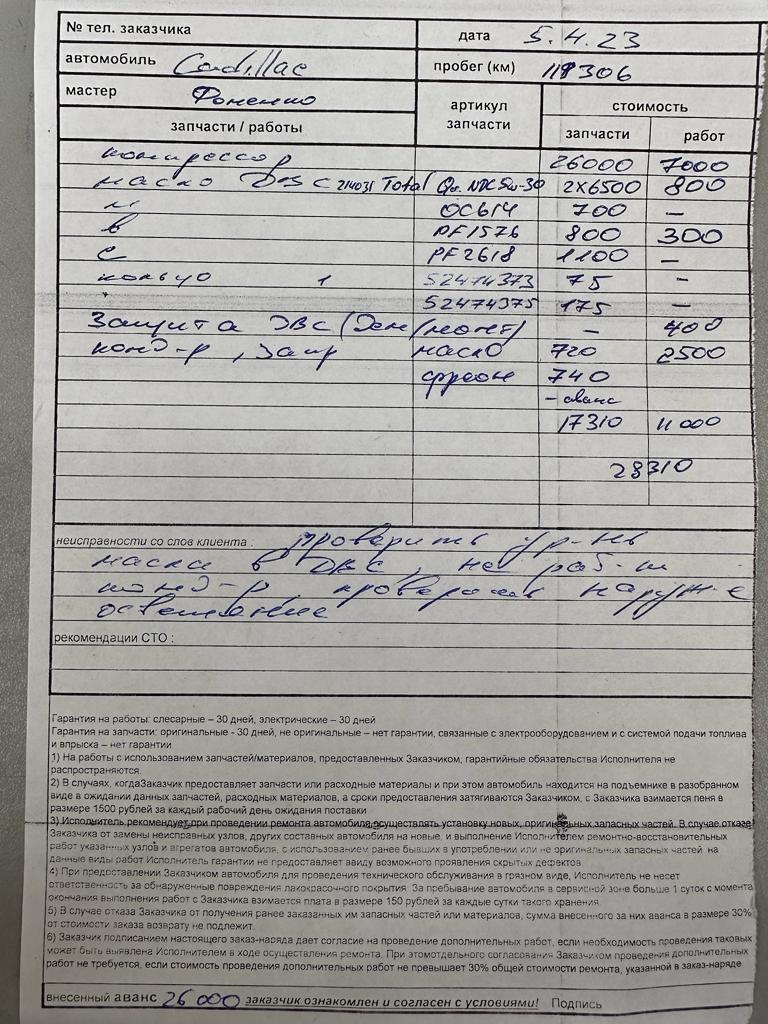 № тел. заказчика дата 5.4.23
автомобиль Cadillac пробег (км) 119306
мастер Фоменко артикул запчасти стоимость
запчасти / работы запчасти работ
компрессор 26000 7000
масло ДВС 214031 Total Qu. 5w-30 2x6500 800
м OC614 700 –
в PF1576 800 300
с PF2618 1100 –
кольцо 1 52474373 75 –
52474375 175 –
Защита ДВС (дем/монт) – 400
конд-р, запр масло 720 2500
фреон 740
– аванс
17310 11000
28310
неисправности со слов клиента : проверить ур-нь
масла в ДВС, не раб-т
конд-р, проверить наруж-е
освещение
рекомендации СТО :
Гарантия на работы: слесарные – 30 дней, электрические – 30 дней
Гарантия на запчасти: оригинальные - 30 дней, не оригинальные – нет гарантии, связанные с электрооборудованием и с системой подачи топлива
и впрыска – нет гарантии
1) На работы с использованием запчастей/материалов, предоставленных Заказчиком, гарантийные обязательства Исполнителя не
распространяются.
2) В случаях, когдаЗаказчик предоставляет запчасти или расходные материалы и при этом автомобиль находится на подъемнике в разобранном
виде в ожидании данных запчастей, расходных материалов, а сроки предоставления затягиваются Заказчиком, с Заказчика взимается пеня в
размере 1500 рублей за каждый рабочий день ожидания поставки
3) Исполнитель рекомендует при проведении ремонта автомобиля осуществлять установку новых, оригинальных запасных частей. В случае отказа
Заказчика от замены неисправных узлов, других составных автомобиля на новые, и выполнение Исполнителем ремонтно-восстановительных
работ указанных узлов и агрегатов автомобиля, с использованием ранее бывших в употреблении или не оригинальных запасных частей на
данные виды работ Исполнитель гарантии не предоставляет ввиду возможного проявления скрытых дефектов
4) При предоставлении Заказчиком автомобиля для проведения технического обслуживания в грязном виде, Исполнитель не несет
ответственность за обнаруженные повреждения лакокрасочного покрытия. За пребывание автомобиля в сервисной зоне больше 1 суток с момента
окончания выполнения работ с Заказчика взимается плата в размере 150 рублей за каждые сутки такого хранения.
5) В случае отказа Заказчика от получения ранее заказанных им запасных частей или материалов, сумма внесенного за них аванса в размере 30%
от стоимости заказа возврату не подлежит.
6) Заказчик подписанием настоящего заказ-наряда дает согласие на проведение дополнительных работ, если необходимость проведения таковых
может быть выявлена Исполнителем в ходе осуществления ремонта. При этомотдельного согласования Заказчиком проведения дополнительных
работ не требуется, если стоимость проведения дополнительных работ не превышает 30% общей стоимости ремонта, указанной в заказ-наряде
внесенный аванс 26000 заказчик ознакомлен и согласен с условиями! Подпись